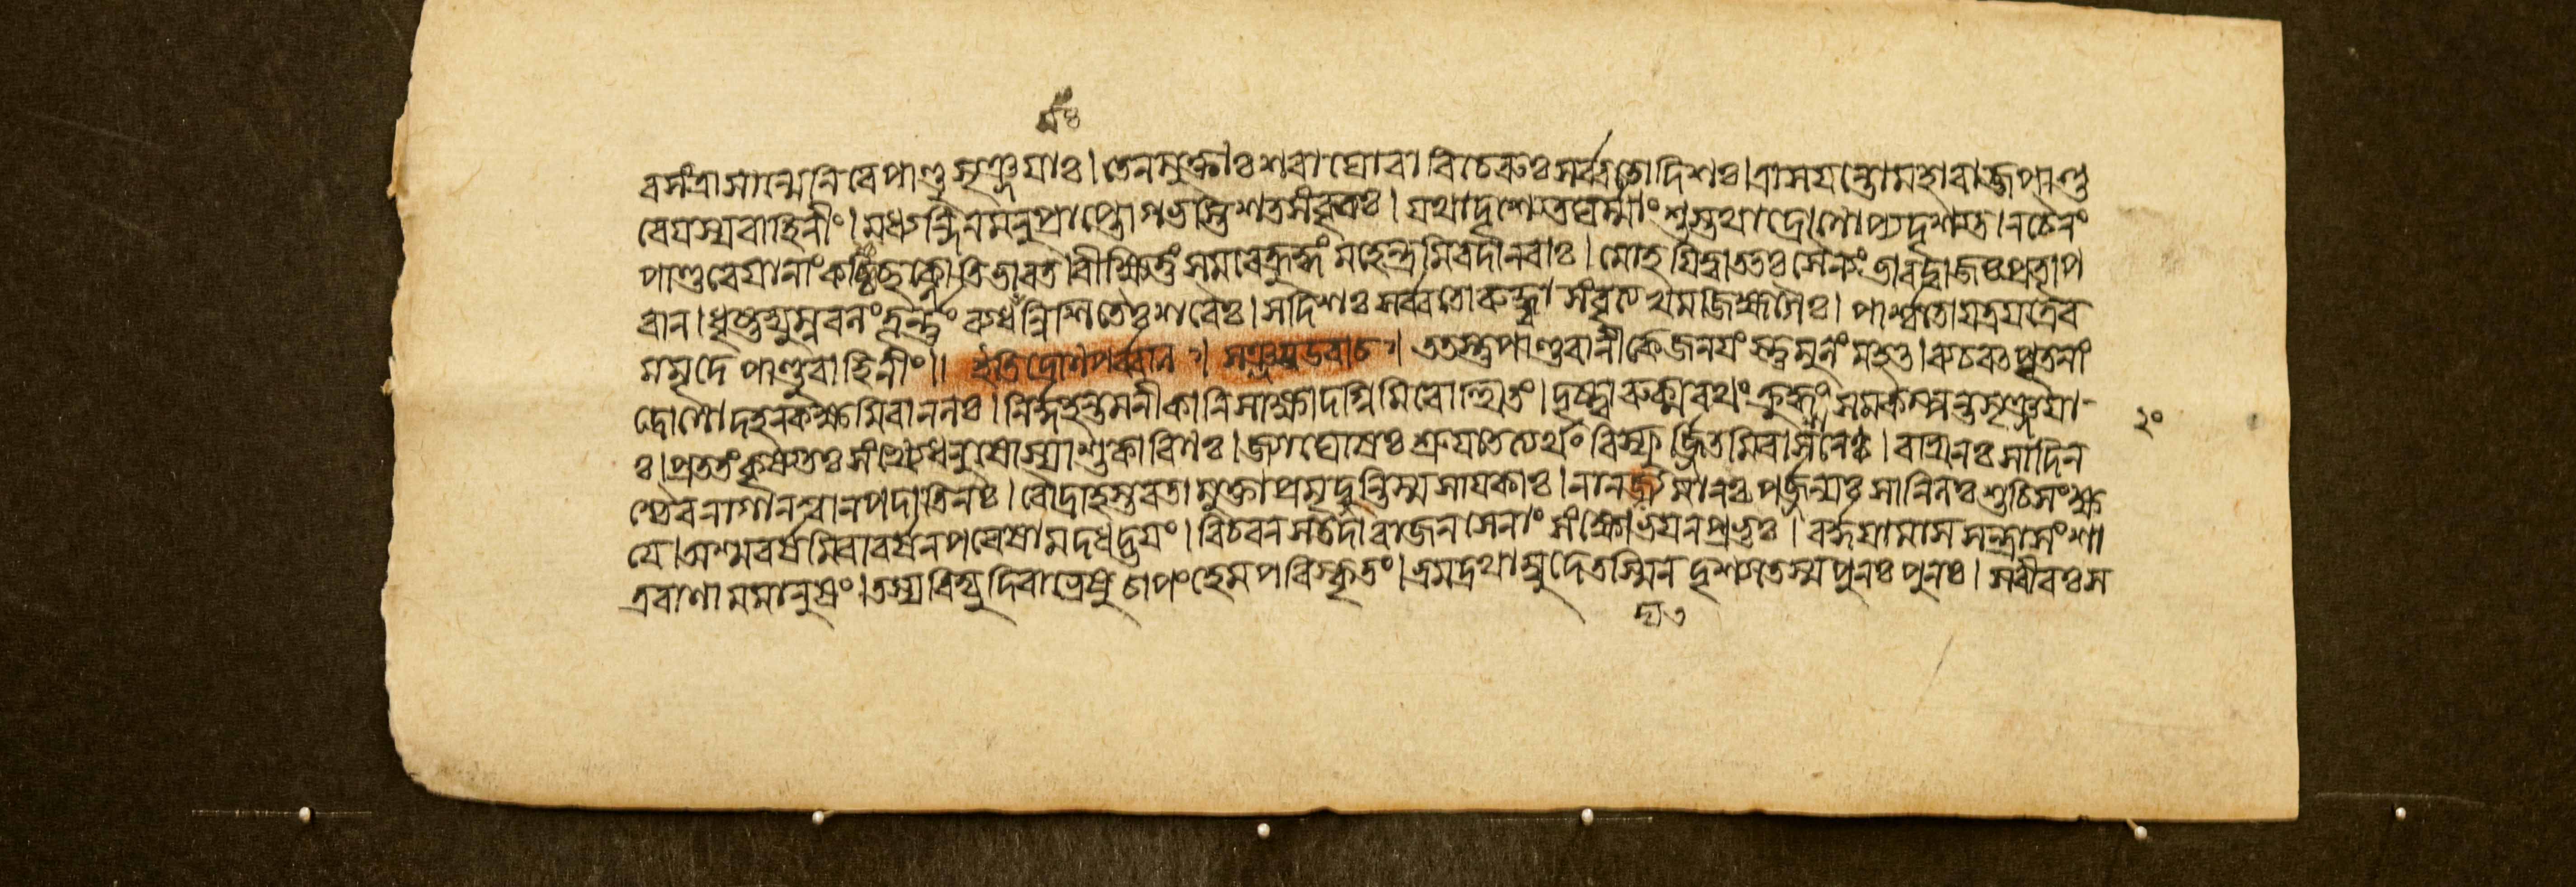 রসংত্রাসান্মেনিরে পাণ্ডুসৃঞ্জয়াঃ। তেনমুক্তাঃ শরাঘোরা বিচেরুঃ সর্ব্বতোদিশঃ। ত্রাসয়ন্তোমহারাজপাণ্ডু
বেয়স্যবাহিনীং। মধ্যন্দিনমনুপ্রাপ্তোগভস্তিশতসংবৃতঃ। যথাদৃশ্যতঘর্ম্মাংশুস্তথাদ্রোণোপ্যদৃশ্যত। নচৈনং
পাণ্ডবেয়ানাংকশ্চিচ্ছক্নোতিভারত। বীক্ষিতুং সমরেক্রুদ্ধং মহেন্দ্রমিবদানবাঃ। মোহয়িত্বাততঃ সৈন্যং ভারদ্বাজঃ প্রতাপ
বান। ধৃষ্টদ্যুম্নবলং তূর্ণং রুধন্নিশিতৈঃ শরৈঃ। সদিশঃ সর্ব্বতোরুদ্ধ্বা সংবৃত্যখমজিহ্মগৈঃ। পার্শ্বতোযত্রযত্রৈব
মমৃদে পাণ্ডুবাহিনীং॥ ইতিদ্রোণপর্ব্বণি। সঞ্জয়উবাচ। ততস্তুপাণ্ডবানীকেজনয়ং স্তুমুলং মহৎ। ব্যচরৎ পৃতনাং
দ্রোণোদহনকক্ষমিবাননলঃ। নির্দ্দহন্তমনীকানিসাক্ষাদগ্নিমিবোত্থিতং। দৃষ্ট্বারুক্মরথং ক্রুদ্ধং সমকম্পন্তসৃঞ্জয়া
ঃ। প্রততং কৃষ্যতঃ সংখ্যেধনুষোস্যাশুকারিণঃ। জ্যাঘোষঃ শ্রুয়তেত্যর্থং বিস্ফূর্জ্জিতমিবাশনেঃ। রথিনঃ সাদিন
শ্চৈবনাগানশ্বানপদাতিনঃ। রৌদ্রাহস্তবতামুক্তাপ্রমৃদ্নন্তিস্মসায়কাঃ। নানদ্যমানঃ পর্জ্জন্যঃ সানিলঃ শুচিসংক্ষ
য়ে। অশ্মবর্ষমিবাবর্ষনপরেষামদধদ্ভয়ং। বিচরনসতদারাজনসেনাং সংক্ষোভয়নপ্রভুঃ। বর্দ্ধয়ামাসসন্ত্রাসং শা
ত্রবাণামমানুষং। তস্যবিদ্যুদিবাভ্রেষু চাপং হেমপরিষ্কৃতং। ভ্রমদ্রথাম্বুদেতস্মিনদৃশ্যতেস্মপুনঃ পুনঃ। সবীরঃ স
২০